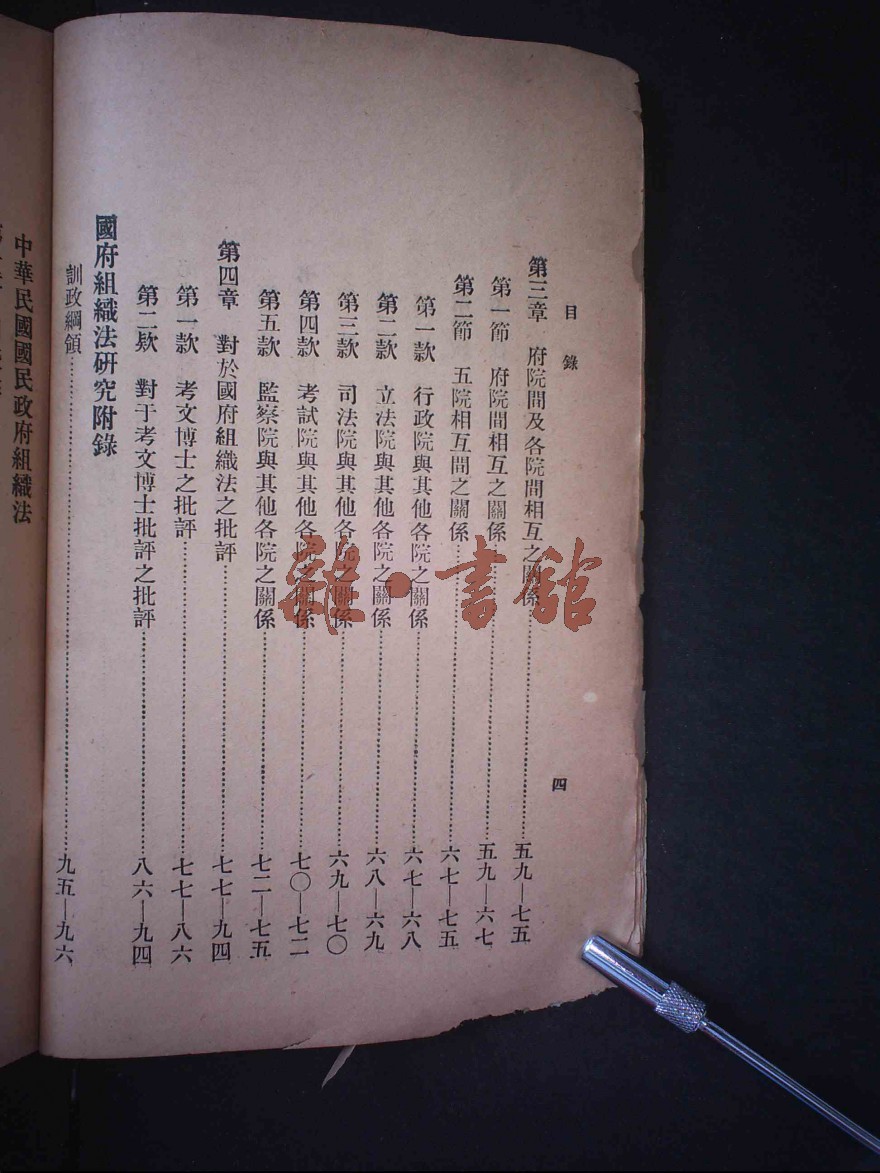 目錄
四
第三章 府院間及各院間相互之關係……五九—七五
第一節 府院間相互之關係……五九—六七
第二節 五院相互間之關係……六七—七五
第一款 行政院與其他各院之關係……六七—六八
第二款 立法院與其他各院之關係……六八—六九
第三款 司法院與其他各院之關係……六九—七〇
第四款 考試院與其他各院之關係……七〇—七二
第五款 監察院與其他各院之關係……七二—七五
第四章 對於國府組織法之批評……七七—九四
第一款 考文博士之批評……七七—八六
第二欵 對于考文博士批評之批評……八六—九四
國府組織法研究附錄
訓政綱領……九五—九六
中華民國國民政府組織法
雜·書館